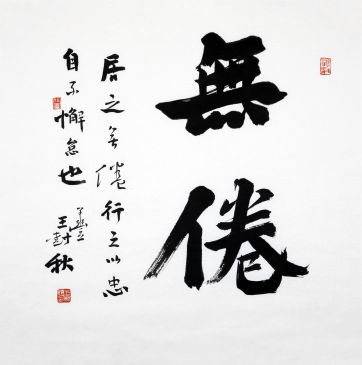 無
倦
居之無倦行之以忠
自不懈怠也
王樹秋